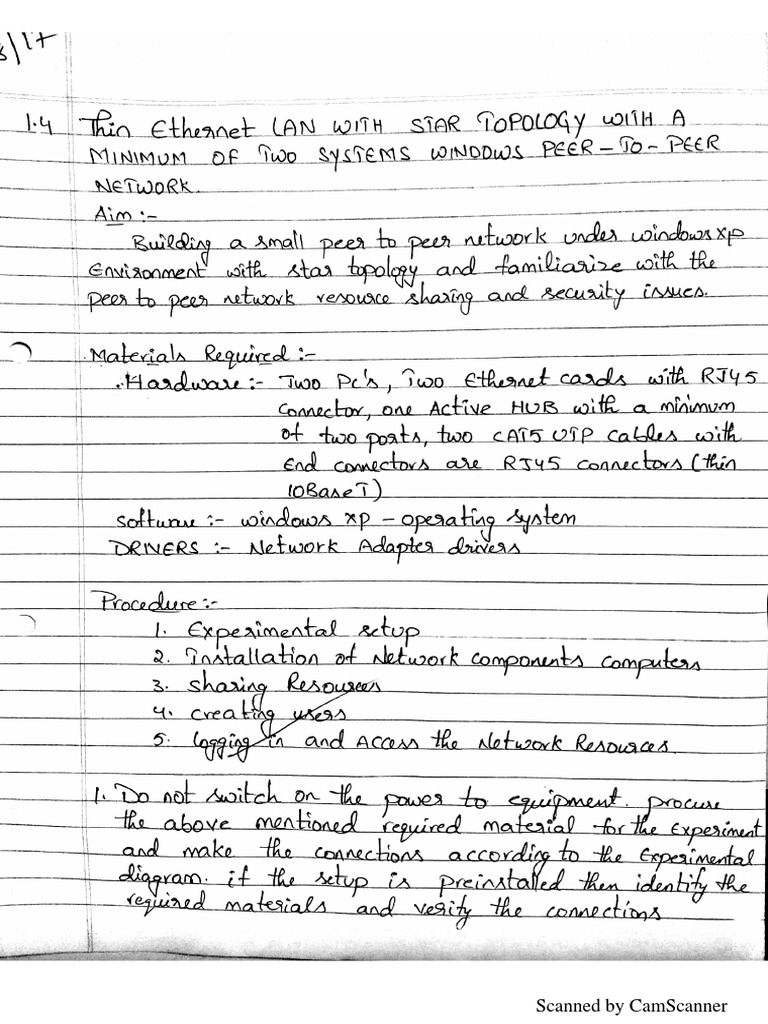 8/17
1.4 Thin Ethernet LAN WITH STAR TOPOLOGY WITH A
MINIMUM OF TWO SYSTEMS WINDOWS PEER-TO-PEER
NETWORK.
Aim :-
Building a small peer to peer network under windows xp
Environment with star topology and familiarize with the
peer to peer network resource sharing and security issues.
Materials Required :-
Hardware :- Two Pc's, Two Ethernet cards with RJ45
Connector, one Active HUB with a minimum
of two ports, two CAT5 UTP cables with
End connectors are RJ45 connectors (thin
10BaseT)
Software :- windows xp - operating system
DRIVERS :- Network Adapter drivers
Procedure :-
1. Experimental setup
2. Installation of Network components computers
3. Sharing Resources
4. creating users
5. logging in and Access the Network Resources.
1. Do not switch on the power to equipment. procure
the above mentioned required material for the Experiment
and make the connections according to the Experimental
diagram. if the setup is preinstalled then identify the
required materials and verify the connections
Scanned by CamScanner